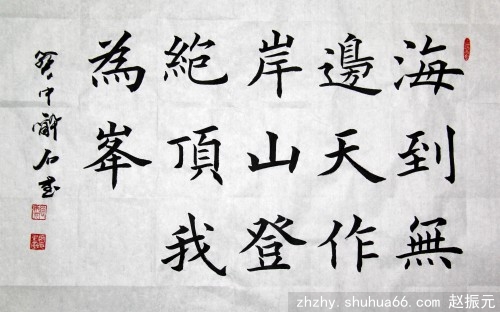 海到無
邊天作
岸山登
絕頂我
為峯
zhzhy.shuhua66.com 赵振元